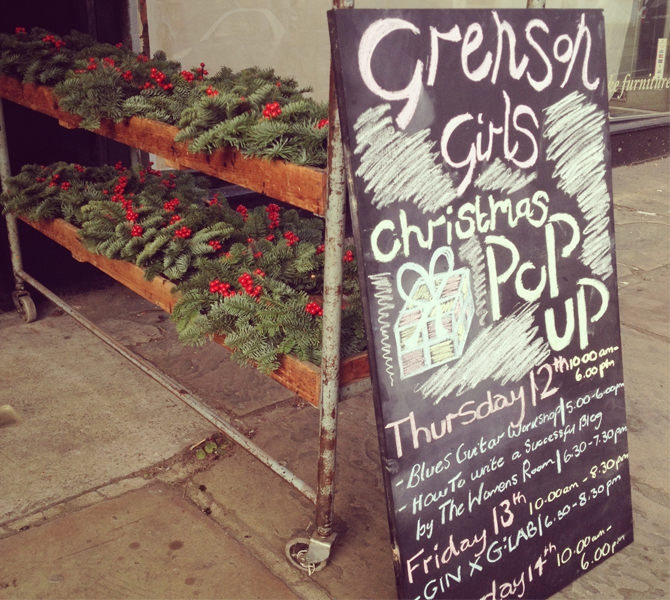 Grenson
Girls
Christmas
POP
UP
Thursday 12th 10:00am-
6.00pm
- Blues Guitar Workshop | 5.00-6.00pm
- How To write a Successful Blog
by The Womens Room | 6:30-7.30pm
Friday 13th 10.00am - 8:30pm
- GIN X G:LAB | 6:30-8:30pm
day 14th 10.00am-
6.00pm